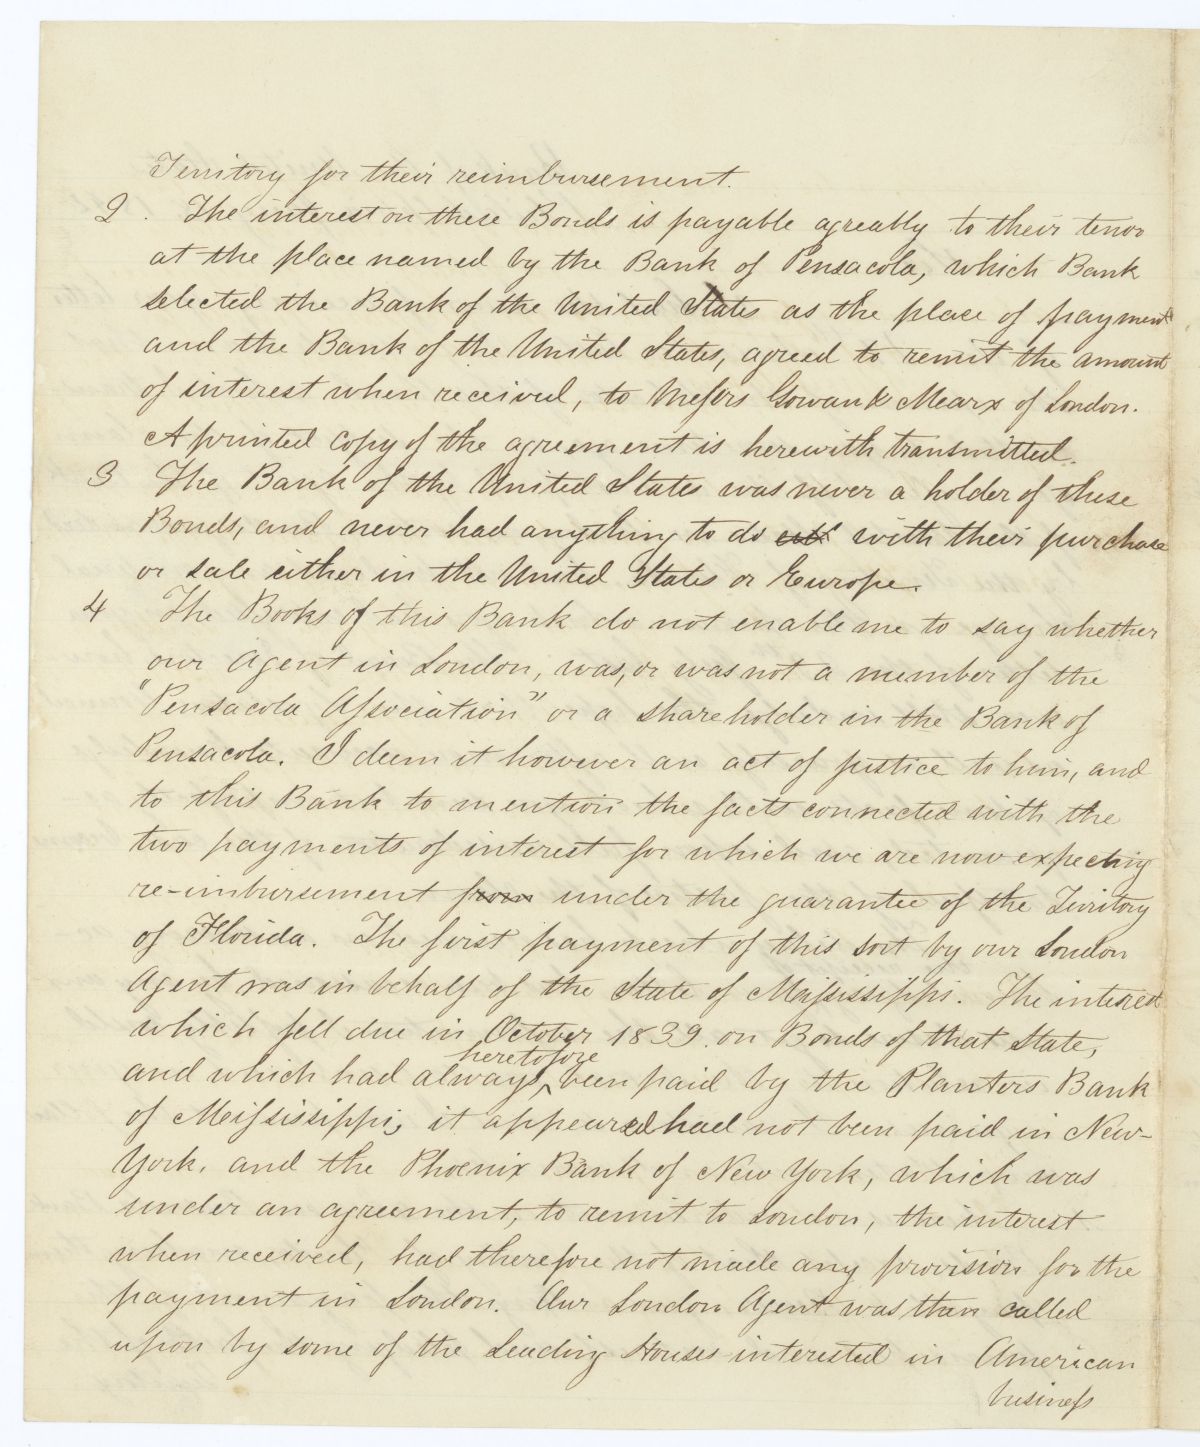 Territory for their reimbursement.
2. The interest on these Bonds is payable agreably to their tenor
at the place named by the Bank of Pensacola, which Bank
selected the Bank of the United States as the place of payment
and the Bank of the United States, agreed to remit the amount
of interest when received, to Messrs Gowan & Marx of London.
A printed copy of the agreement is herewith transmitted.
3 The Bank of the United States was never a holder of these
Bonds, and never had anything to do with their purchase
or sale either in the United States or Europe.
4 The Books of this Bank do not enable me to say whether
our Agent in London, was, or was not a member of the
"Pensacola Association" or a shareholder in the Bank of
Pensacola. I deem it however an act of justice to him, and
to this Bank to mention the facts connected with the
two payments of interest for which we are now expecting
re-imbursement from under the guarantee of the Territory
of Florida. The first payment of this sort by our London
Agent was in behalf of the State of Mississippi. The interest
which fell due in October 1839. on Bonds of that State,
heretofore
and which had always, been paid by the Planters Bank
of Mississippi, it appeared had not been paid in New-
York, and the Phoenix Bank of New York, which was
under an agreement, to remit to London, the interest
when received, had therefore not made any provision for the
payment in London. Our London Agent was then called
upon by some of the Leading Houses interested in American
business